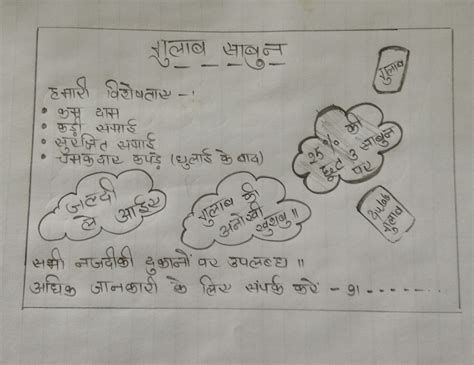 गुलाब साबुन
हमारी विशेषताए -:
• कम दाम
• कड़ी सफाई
• सुरक्षित सफाई
• चमकदार कपड़े (धुलाई के बाद)
गुलाब
25% की
छूट 3 साबुन
पर
जल्दी
ले
आईए
गुलाब की
अनोखी
खुशबु ॥
साबुन
गुलाब
सभी नजदीकी दुकानों पर उपलब्ध ॥
अधिक जानकारी के लिए संपर्क करें - 91 - - - - - - -